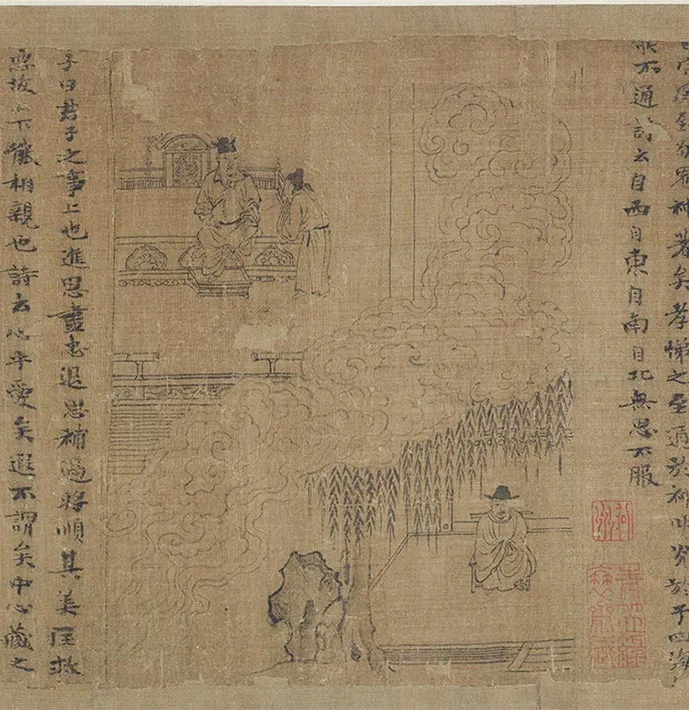 宗廟致敬鬼神著矣孝悌之至通於神明光於于四海
所不通詩云自西自東自南自北無思不服
子曰君子之事上也進思盡忠退思補過將順其美匡救
惡故上下能相親也詩云心乎愛矣遐不謂矣中心藏之